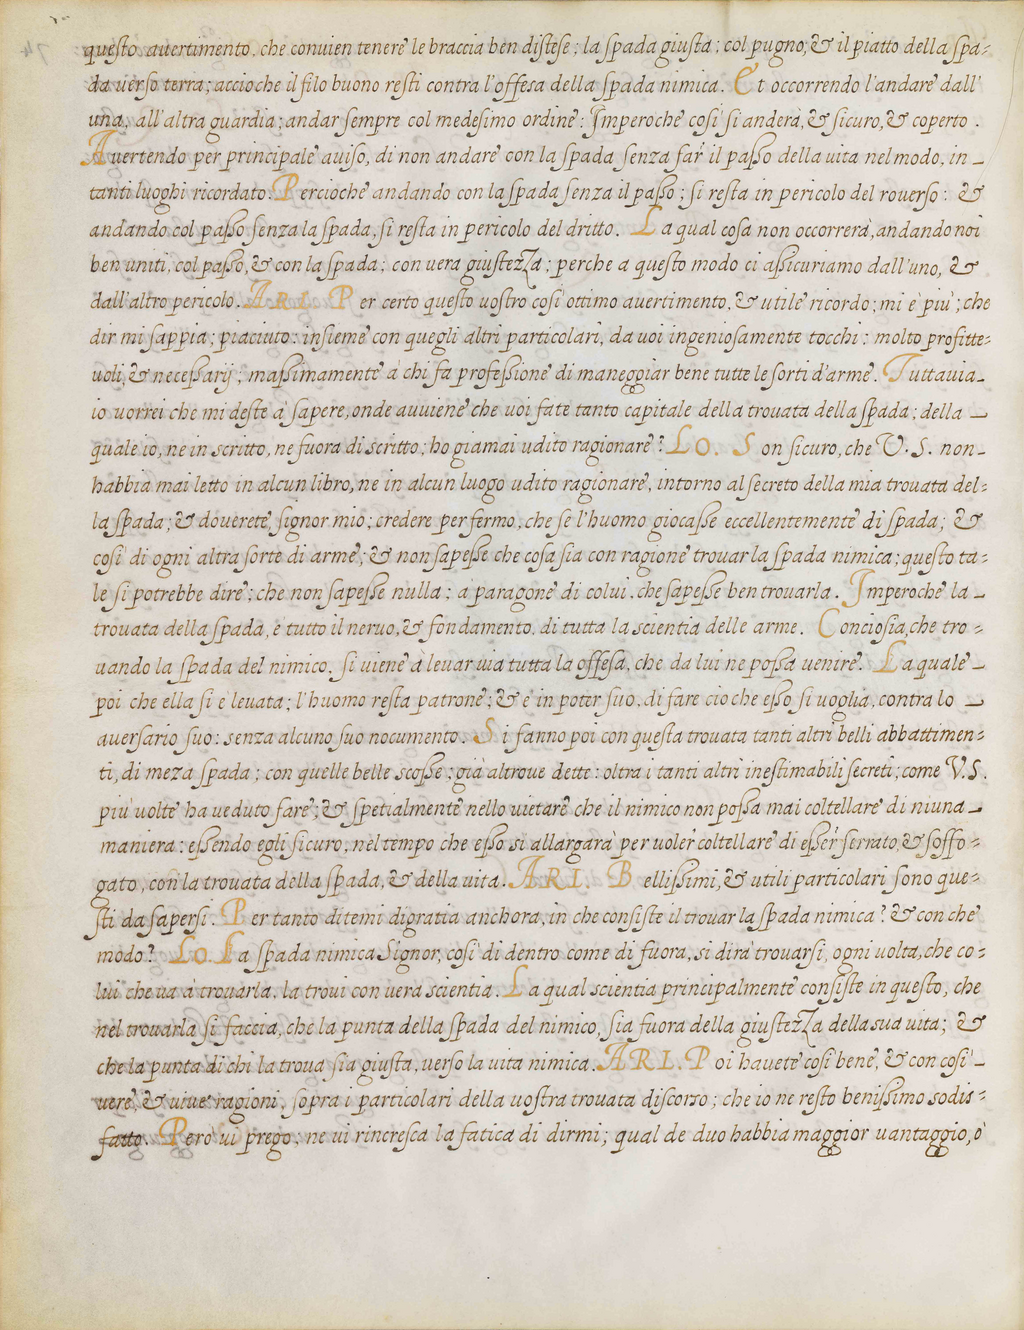 questo auertimento, che conuien tenere le braccia ben distese; la spada giusta; col pugno, & il piatto della spa=
da uerso terra; accioche il filo buono resti contra l'offesa della spada nimica. Et occorrendo l'andare dall'
una, all'altra guardia; andar sempre col medesimo ordine: Imperoche così si anderà, & sicuro, & coperto.
Auertendo per principale auiso, di non andare con la spada senza far il passo della uita nel modo, in
tanti luoghi ricordato. Percioche andando con la spada senza il passo; si resta in pericolo del rouerso: &
andando col passo senza la spada, si resta in pericolo del dritto. La qual cosa non occorrerà, andando noi
ben uniti, col passo, & con la spada; con uera giustezza; perche a questo modo ci assicuriamo dall'uno, &
dall'altro pericolo. ARI. Per certo questo uostro così ottimo auertimento, & utile ricordo; mi è più; che
dir mi sappia; piaciuto: insieme con quegli altri particolari, da uoi ingeniosamente tocchi: molto profitte=
uoli, & necessarij; massimamente à chi fa professione di maneggiar bene tutte le sorti d'arme. Tuttauia
io uorrei che mi deste à sapere, onde auuiene che uoi fate tanto capitale della trouata della spada; della
quale io, ne in scritto, ne fuora di scritto, ho giamai udito ragionare? LO. Son sicuro, che V.S. non
habbia mai letto in alcun libro, ne in alcun luogo udito ragionare, intorno al secreto della mia trouata del=
la spada; & douerete, signor mio; credere per fermo, che se l'huomo giocasse eccellentemente di spada; &
così di ogni altra sorte di arme; & non sapesse che cosa sia con ragione trouar la spada nimica; questo ta=
le si potrebbe dire; che non sapesse nulla; a paragone di colui, che sapesse ben trouarla. Imperoche la
trouata della spada, è tutto il neruo, & fondamento, di tutta la scientia delle arme. Conciosia, che tro=
uando la spada del nimico, si uiene à leuar uia tutta la offesa, che da lui ne possa uenire. La quale
poi che ella si è leuata; l'huomo resta patrone; & è in poter suo, di fare cio che esso si uoglia, contra lo
auersario suo: senza alcuno suo nocumento. Si fanno poi con questa trouata tanti altri belli abbattimen=
ti, di meza spada; con quelle belle scosse; già altroue dette: oltra i tanti altri inestimabili secreti; come V.S.
più uolte ha ueduto fare; & spetialmente nello uietare che il nimico non possa mai coltellare di niuna
maniera: essendo egli sicuro, nel tempo che esso si allargarà per uoler coltellare di esser serrato, & soffo=
gato, con la trouata della spada, & della uita. ARI. Bellissimi, & utili particolari sono que=
sti da sapersi. Per tanto ditemi digratia anchora, in che consiste il trouar la spada nimica? & con che
modo? LO. La spada nimica Signor, così di dentro come di fuora, si dirà trouarsi, ogni uolta, che co=
lui che ua à trouarla, la troui con uera scientia. La qual scientia principalmente consiste in questo, che
nel trouarla si faccia, che la punta della spada del nimico, sia fuora della giustezza della sua uita; &
che la punta di chi la troua sia giusta, uerso la uita nimica. ARI. Poi hauete così bene, & con così
uere, & uiue ragioni, sopra i particolari della uostra trouata discorso; che io ne resto benissimo sodis=
fatto. Però ui prego; ne ui rincresca la fatica di dirmi; qual de duo habbia maggior uantaggio, ò